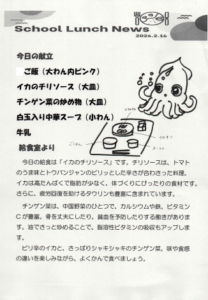 School Lunch News
2026.2.16
今日の献立
ご飯（大わん内ピンク）
イカのチリソース（大皿）
チンゲン菜の炒め物（大皿）
白玉入り中華スープ（小わん）
牛乳
給食室より
今日の給食は「イカのチリソース」です。チリソースは、トマト
のうま味とトウバンジャンのピリッとした辛さが合わさった料理。
イカは高たんぱくで脂肪が少なく、体づくりにぴったりの食材です。
さらに、疲労回復を助けるタウリンも豊富に含まれています。
チンゲン菜は、中国野菜のひとつで、カルシウムや鉄、ビタミン
Cが豊富。骨を丈夫にしたり、貧血を予防したりする働きがありま
す。油でさっと炒めることで、脂溶性ビタミンの吸収もアップしま
す。
ピリ辛のイカと、さっぱりシャキシャキのチンゲン菜。味や食感
の違いを楽しみながら、よくかんで食べましょう。